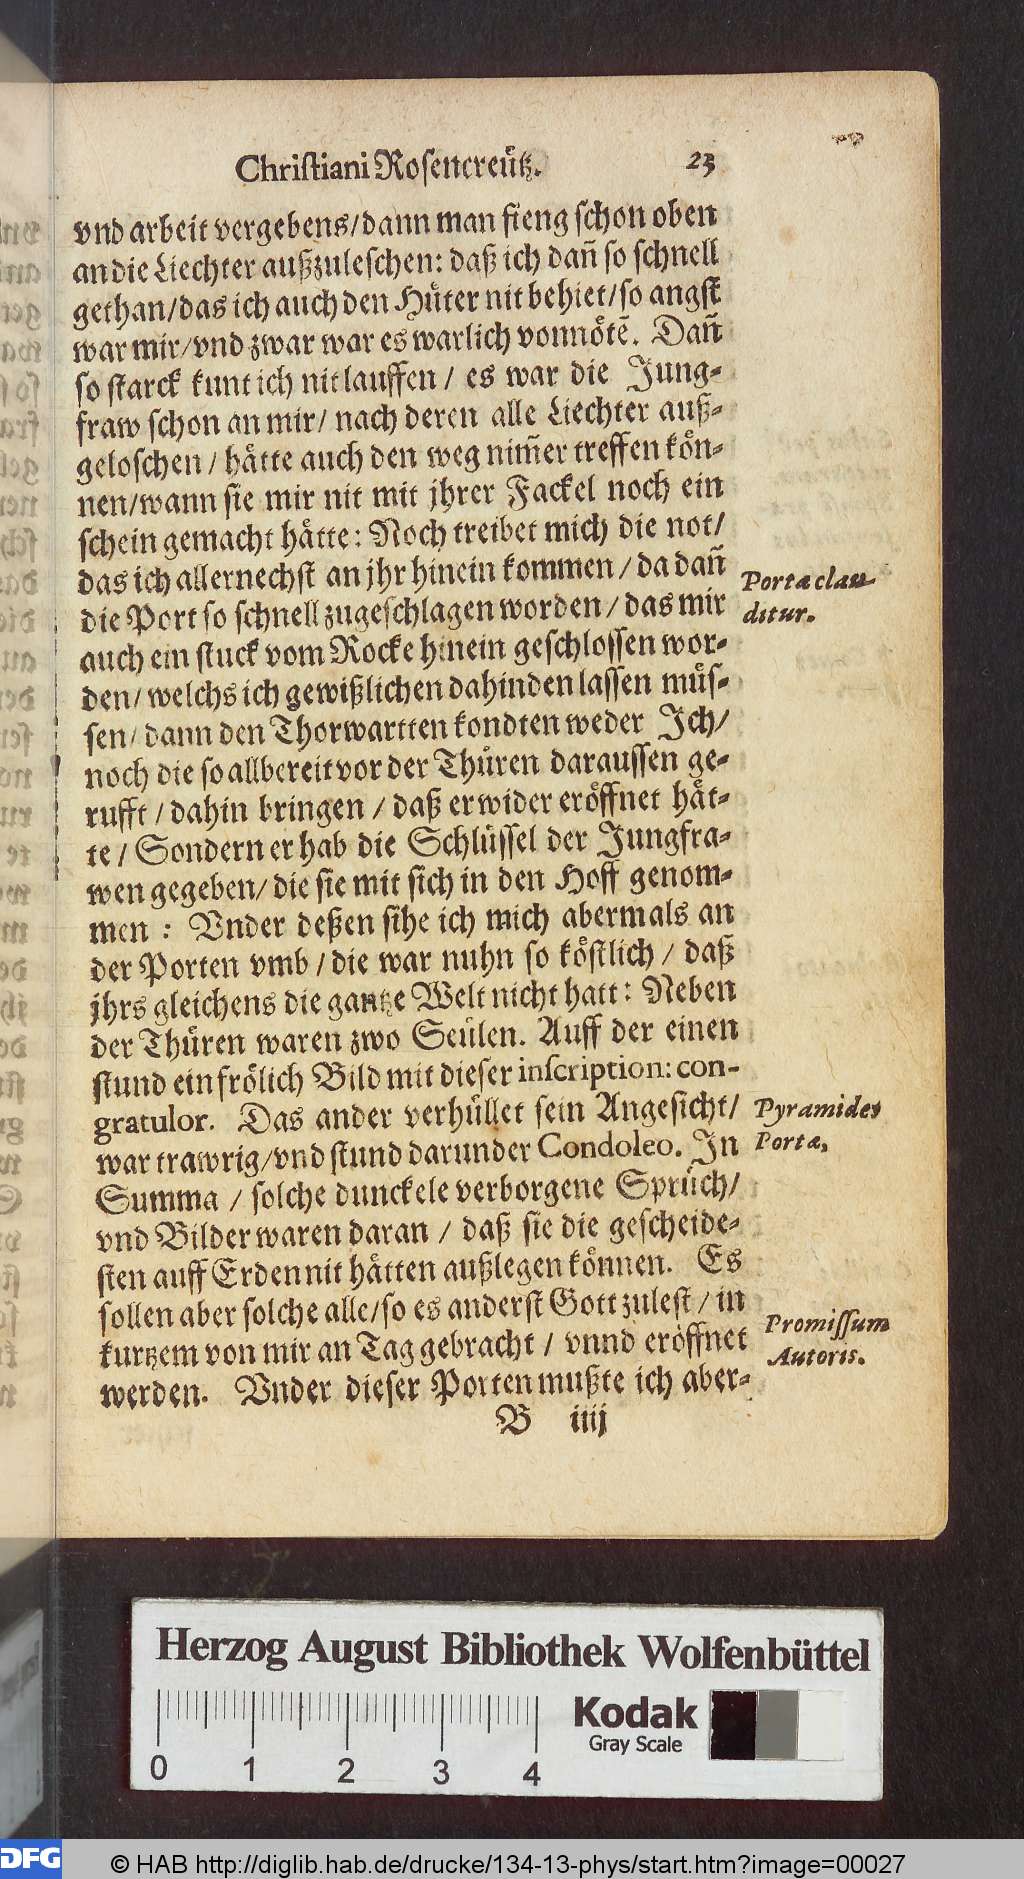 Christiani Rosencreütz. 23
vnd arbeit vergebens/dann man fieng schon oben
an die Liechter außzuleschen: daß ich dañ so schnell
gethan/das ich auch den Hüter nit behiet/so angst
war mir/vnd zwar war es warlich vonnötẽ. Dañ
so starck kunt ich nit lauffen/ es war die Jung-
fraw schon an mir/ nach deren alle Liechter auß-
geloschen/ hätte auch den weg nim̃er treffen kön-
nen/wann sie mir nit mit jhrer Fackel noch ein
schein gemacht hätte: Noch treibet mich die not/
das ich allernechst an jhr hinein kommen/da dañ
die Port so schnell zugeschlagen worden/das mir
auch ein stuck vom Rocke hinein geschlossen wor-
den/ welchs ich gewißlichen dahinden lassen müs-
sen/ dann den Thorwartten kondten weder Ich/
noch die so allbereit vor der Thüren daraussen ge-
rufft/dahin bringen/ daß er wider eröffnet hät-
te/ Sondern er hab die Schlüssel der Jungfra-
wen gegeben/ die sie mit sich in den Hoff genom-
men: Vnder deßen sihe ich mich abermals an
der Porten vmb/die war nuhn so köstlich/ daß
jhrs gleichens die gantze Welt nicht hatt: Neben
der Thüren waren zwo Seülen. Auff der einen
stund ein frölich Bild mit dieser inscription: con-
gratulor. Das ander verhüllet sein Angesicht/
war trawrig/vnd stund darunder Condoleo. In
Summa/ solche dunckele verborgene Sprüch/
vnd Bilder waren daran/ daß sie die gescheide-
sten auff Erden nit hätten außlegen können. Es
sollen aber solche alle/so es anderst Gott zulest/in
kurtzem von mir an Tag gebracht/ vnnd eröffnet
werden. Vnder dieser Porten mußte ich aber-
B iiij
Porta clau
ditur.
Pyramides
Portæ.
Promissum
Autoris.
Herzog August Bibliothek Wolfenbüttel
0 1 2 3 4
Kodak
Gray Scale
DFG © HAB http://diglib.hab.de/drucke/134-13-phys/start.htm?image=00027